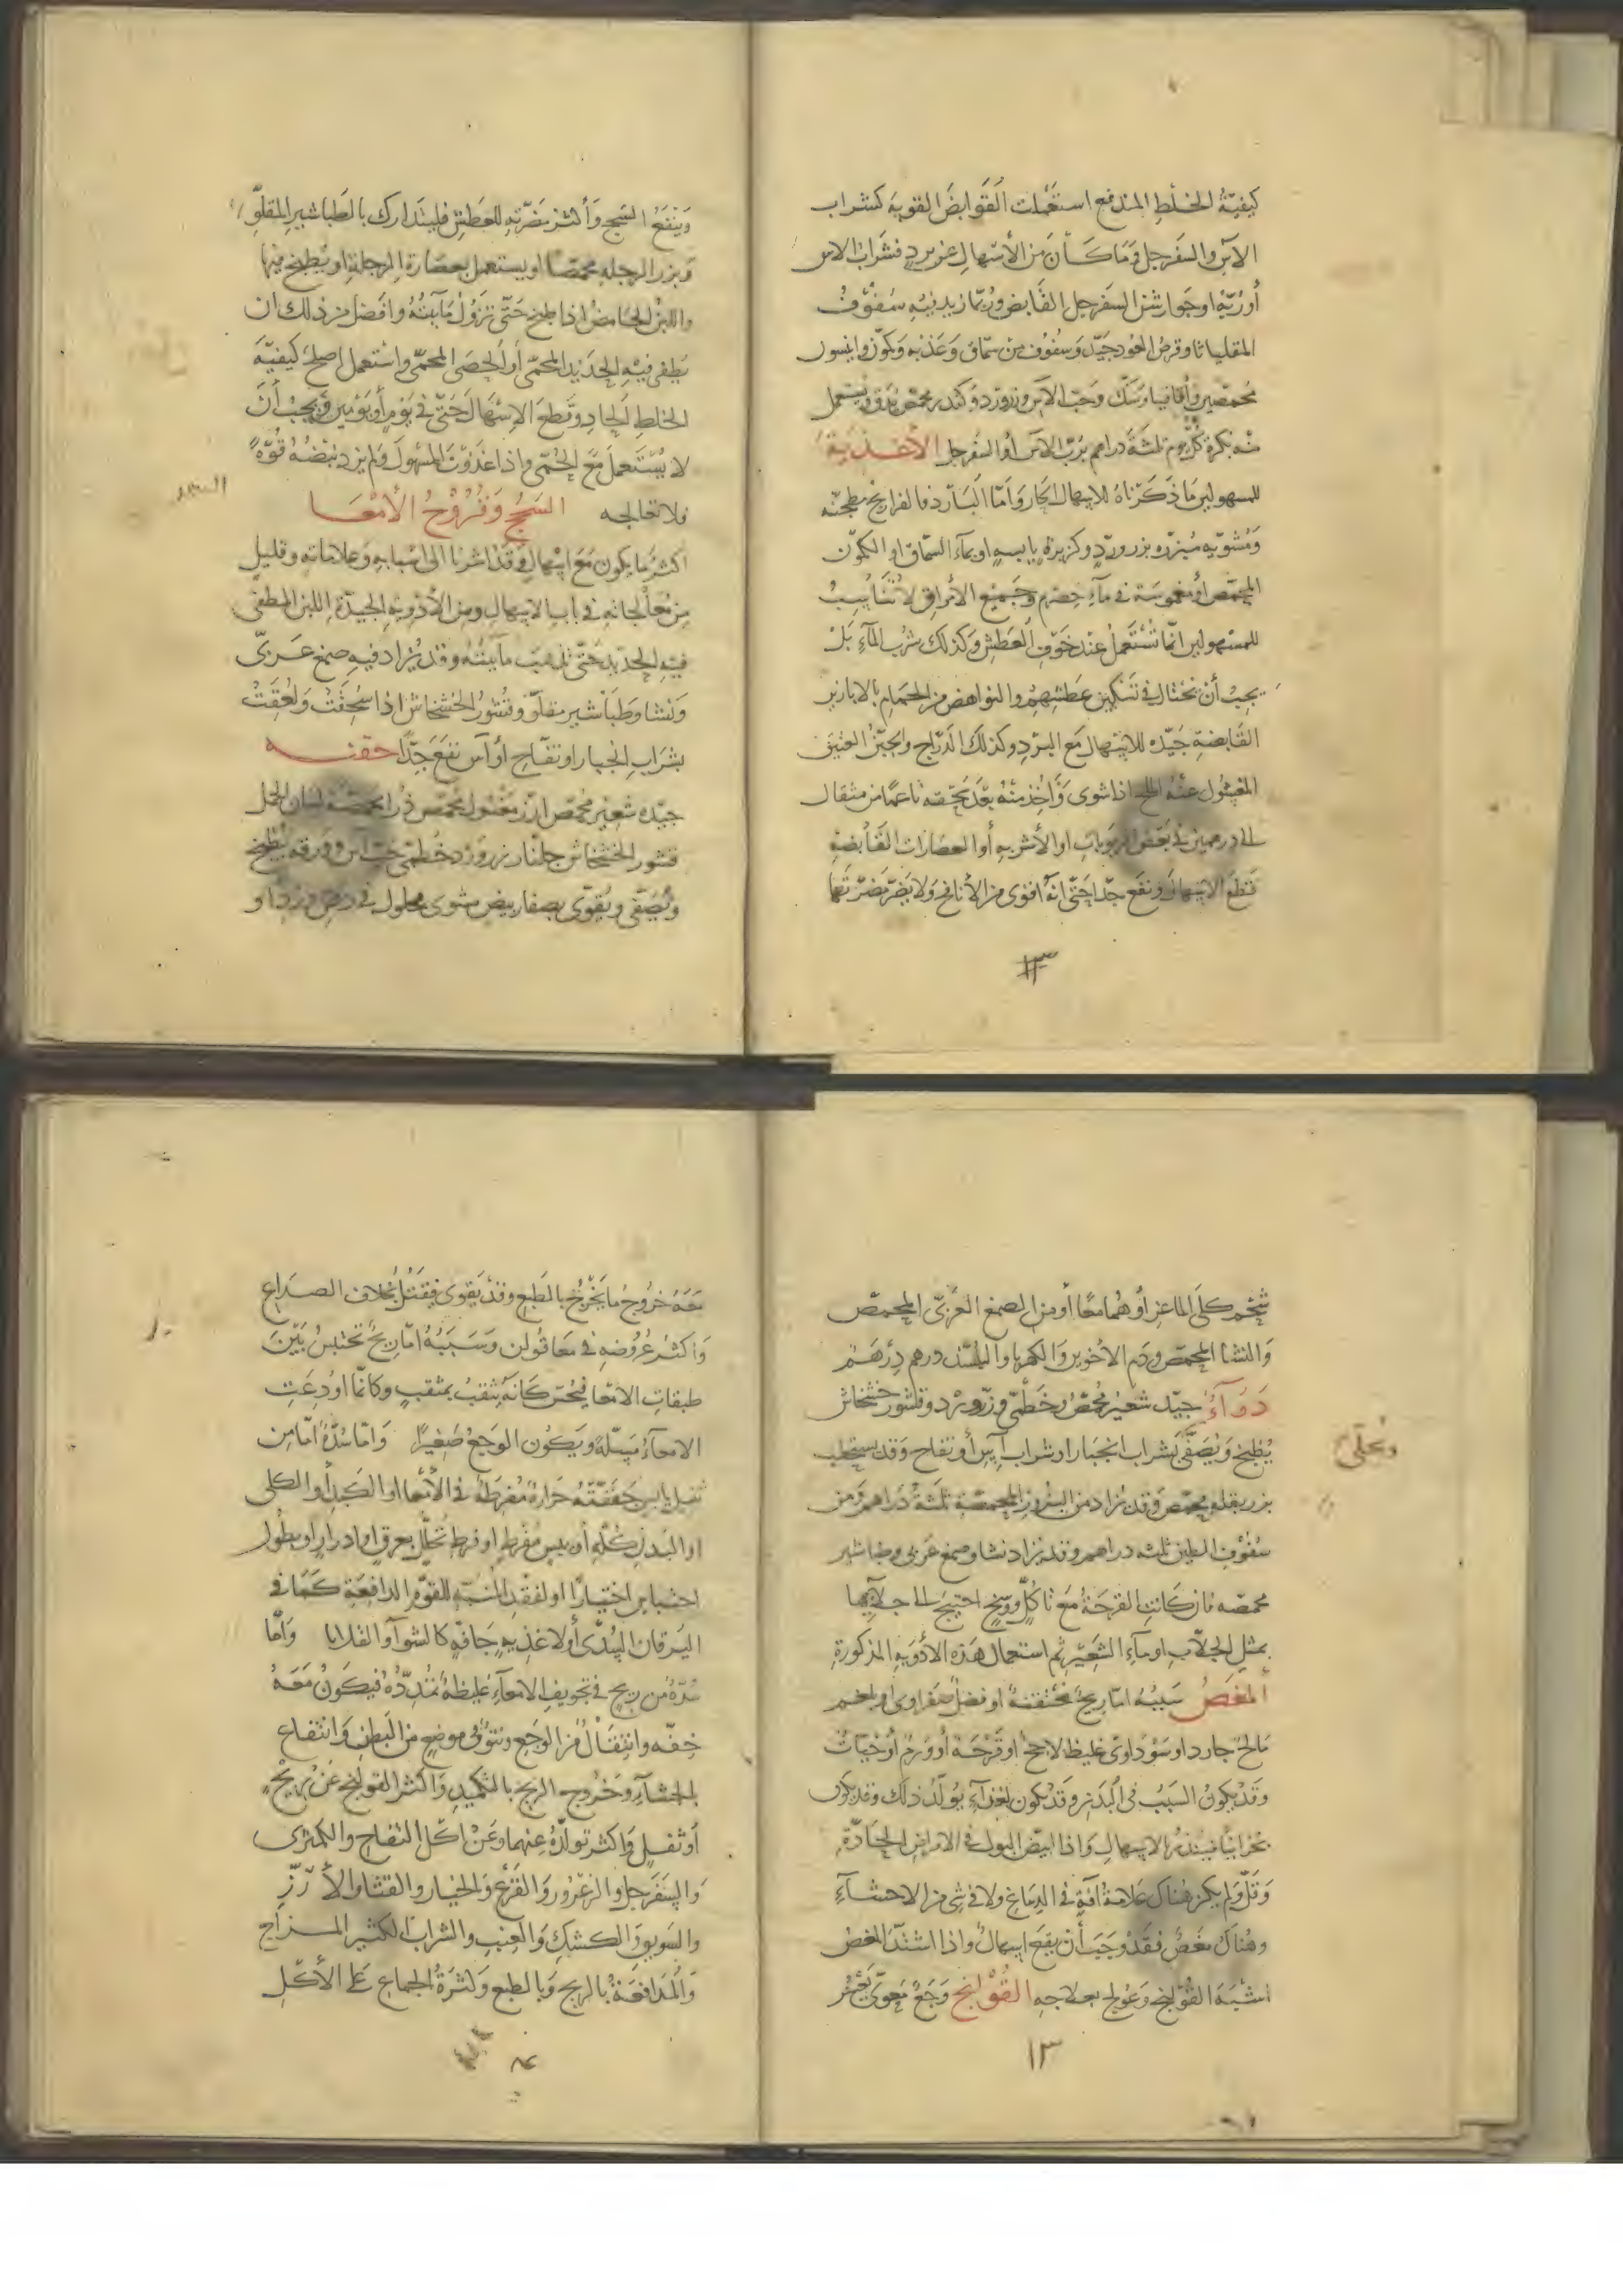 كيفية الخلط المندفع استعملت القوابض القوية كشراب
الآس والسفرجل وما كان من الأسهال عن برد فشراب الاس
أو ربه او جوارشن السفرجل القابض وربما زيد فيه سفوف
المقلياثا وقرص العود جيد وسفوف من سماق وكمون وانيسون
محمصين وأقاقيا وسك وحب الآس وزرورد وكندر محمص يدق ويستعمل
منه بكرة كل يوم ثلثة دراهم برب الآس أو السفرجل الأغذية
للمسهولين ما ذكرناه للاسهال الحار وأما البارد فالفراريج مطجنه
ومشويه مبزره بزرورد وكزبرة يابسه او بماء السماق او الكمون
المحمص أو مغموسة في ماء حصرم وجميع الأمراق لا تناسب
للمسهولين انما تستعمل عند خوف العطش وكذلك شرب الماء بل
يجب أن نحتال في تسكين عطشهم والنواهض من الحمام بالابازير
القابضة جيده للاسهال مع البرد وكذلك الدراج والجبن العتيق
المغسول عنه الملح اذا شوى وأخذ منه بعد سحقه ناعما من مثقال
الى درهمين في بعض الربوبات او الأشربه أو العصارات القابضة
قطع الاسهال ونفع جدا حتى انه أقوى من الأنافح ولا يضر مضرتها
١٣
وينفع السحج وأكثر مضرته للعطش فليتدارك بالطباشير المقلو
وبزر الرجله محمصا او يستعمل بعصارة الرجلة او يطبخ فيها
واللبن الحامض اذا طبخ حتى تزول مآئيته وافضل من ذلك ان
يطفى فيه الحديد المحمى أو الحصى المحمى واستعمل اصلح كيفية
الخلط الحاد وقطع الاسهال حتى في يوم أو يومين ويجب أن
لا يستعمل مع الحمى واذا غذوت المسهول ولم يزد نبضه قوة
فلا تعالجه السحج وقروح الأمعا
السحج
اكثر ما يكون مع اسهال وقد اشرنا الى اسبابه وعلاماته وقليل
من معالجاته في باب الاسهال ومن الأدوية الجيدة اللبن المطفى
فيه الحديد حتى تذهب مآئيته وقد يزاد فيه صمغ عربي
ونشا وطباشير مقلو وقشور الخشخاش اذا سحقت ولعقت
بشراب انجبار او تفاح أو آس نفع جدا حقنه
جيده شعير محمص ارز مغسول محمص لسان الحمل
قشور الخشخاش جلنار زرورد خطمى حب آس وورقه يطبخ
ويصفى ويقوى بصفار بيض مشوى محلول في دهن ورد او
شحم كلى الماعز أو هما معا أو من الصمغ العربي المحمص
والنشا المحمص ودم الاخوين والكهربا والبسد درهم درهم
دوآء جيد شعير محمص وخطمى وزرورد وقشور خشخاش
يطبخ ويصفى بشراب انجبار او شراب آس أو تفاح وقد يستحلب
ويحلى
بزر بقله محمص وقد يزاد من البزور المحمصة ثلثة دراهم ومن
سفوف الطين ثلثه دراهم وقد يزاد نشا وصمغ عربي وطباشير
محمصه فان كانت القرحة مع تاكل ووسخ احتيج الى جلآيها
بمثل الجلاب او مآء الشعير ثم استعمال هذه الأدويه المذكورة
المغص سببه اما ريح محتقنة او فضل صفراوى او بلغم
مالح حار او سوداوى غليظ لاحج او قرحة أو ورم أو حيات
وقد يكون السبب في البدن وقد يكون لغذآء يولد ذلك وقد يكون
بحرانيا فينذر بالاسهال واذا ابيض البول في الامراض الحادة
وقل ولم يكن هناك علامة آفة في الدماغ ولا في شى من الاحشآء
وهناك مغص فقد وجب أن يقع اسهال واذا اشتد المغص
اشبه القولنج وعولج بعلاجه القولنج وجع معوى يعسر
١٣
معه خروج ما يخرج بالطبع وقد يقوى فيقتل بخلاف الصداع
واكثر عروضه في معا قولن وسببه اما ريح تحتبس بين
طبقات الامعا فيحس كانه يثقب بمثقب وكانما اودعت
الامعآء مسلة ويكون الوجع صغيرا واما سدة اما من
ثفل يابس جففته حرارة مفرطة في الأمعا او الكبد أو الكلى
او البدن كله أو يبس مفرط او فرط تحلل بعرق او ادرار او بطول
احتباس اختيارا او لفقد المنبه للقوة الدافعة كما في
اليرقان السدى أو لاغذيه جافه كالشوآء والقلايا واما
سدة من ريح في تجويف الامعآء غليظة تمدده فيكون معه
خفه وانتقال من الوجع ونتو في موضع من البطن وانتفاع
بالجشآء وخروج الريح بالتكميد وأكثر القولنج عن ريح
أو ثفل واكثر تولده عنهما وعن اكل التفاح والكمثرى
والسفرجل والزعرور والقرع والخيار والقثاء والأرز
والسويق والكشك والعنب والشراب الكثير المزاج
والمدافعة بالريح وبالطبع ولكثرة الجماع على الأكل